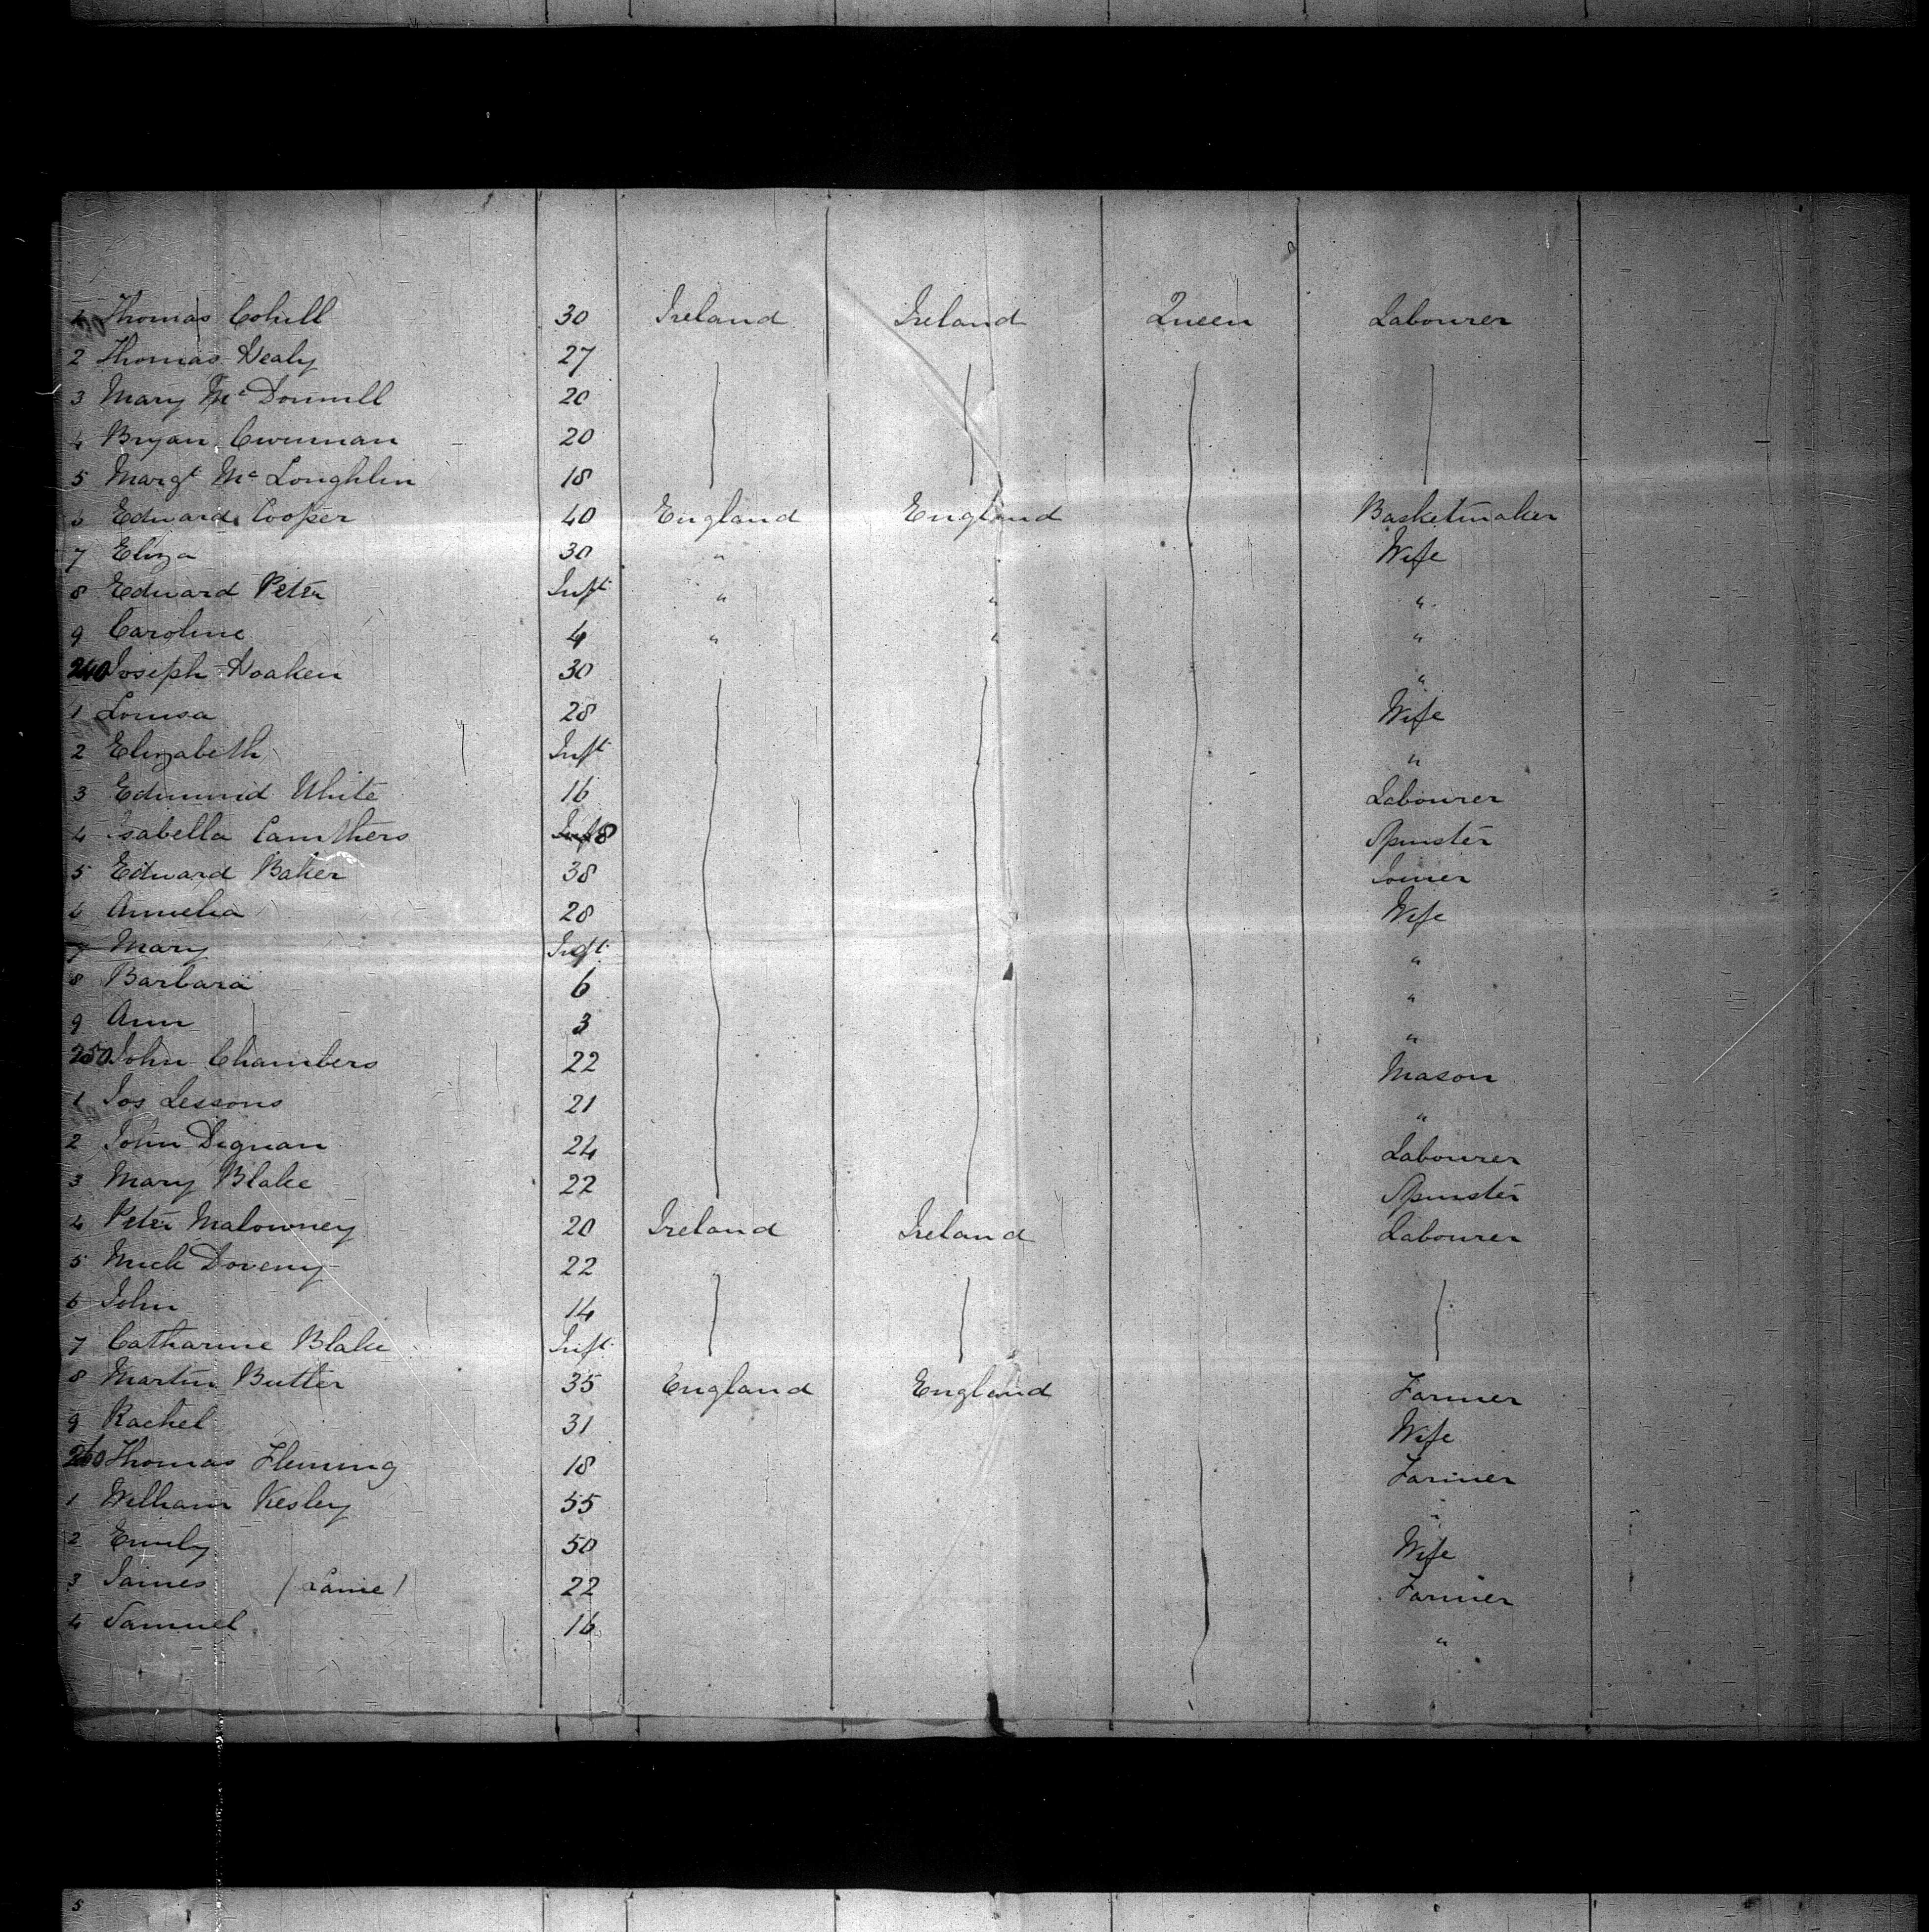 1 Thomas Cohill 30 Ireland Ireland Queen Labourer
2 Thomas Healy 27
3 Mary Mc Donnell 20
4 Bryan 20
5 Margt Mc Loughlin 18
6 Edward Cooper 40 England England Basketmaker
7 Eliza 30 " " Wife
8 Edward Peter Inft " " "
9 Caroline 4 " " "
240 Joseph Hoaken 30 "
1 Louisa 28 Wife
2 Elizabeth Inft "
3 Edmund White 16 Labourer
4 Isabella Carruthers 8 Spinster
5 Edward Baker 38 Joiner
6 Annelia 28 Wife
7 Mary Inft "
8 Barbara 6 "
9 Ann 3 "
250 John Chambers 22 Mason
1 Jos Lessons 21 "
2 John Dignan 24 Labourer
3 Mary Blake 22 Spinster
4 Peter Malowney 20 Ireland Ireland Labourer
5 Mick Doveny 22
6 John 14
7 Catharine Blake Inft
8 Martin Butler 35 England England Farmer
9 Rachel 31 Wife
260 Thomas Fleming 18 Farmer
1 William Kesley 55 "
2 Emily 50 Wife
3 James (Lame) 22 Farmer
4 Samuel 16 "
5